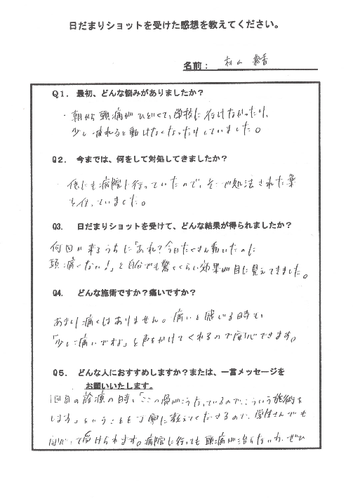 日だまりショットを受けた感想を教えてください。
名前：
Q1. 最初、どんな悩みがありましたか？
・朝から頭痛がひどくて、学校に行けなかったり、
少し疲れると動けなくなったりしていました。
Q2. 今までは、何をして対処してきましたか？
他にも病院に行っていたので、そこで処法された薬
を
Q3. 日だまりショットを受けて、どんな結果が得られましたか？
何回か来るうちに「あれ？今日たくさん動いたのに
頭痛くない！」と自分でも驚くくらい効果が目に見えてきました。
Q4. どんな施術ですか？痛いですか？
あまり痛くはありません。痛いと感じる時でも
「少し痛いですよ」と声をかけてくれるので安心できます。
Q5. どんな人におすすめしますか？または、一言メッセージを
お願いいたします。
1回目の診療の時、「ここの骨が こういう施術を
します。」ということを丁寧に教えてくださるので、学生さんでも
安心して受けられます。病院に行っても頭痛が治らない方、ぜひ